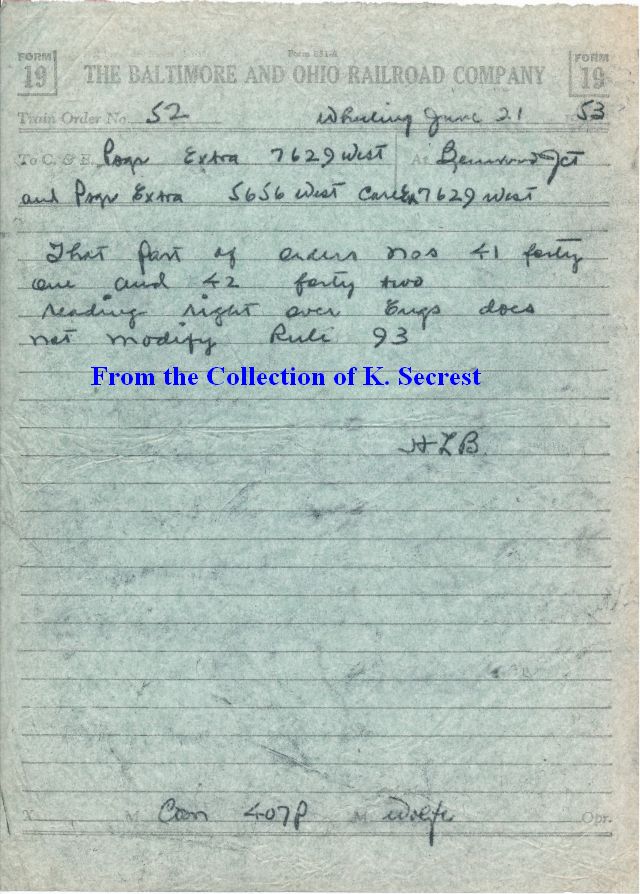 FORM 19 Form 831-A FORM 19
THE BALTIMORE AND OHIO RAILROAD COMPANY
Train Order No. 52 Wheeling June 21 1953
To C. & E. Psgr Extra 7629 West At Benwood Jct
and Psgr Extra 5656 West Care Ex 7629 West
That part of orders nos 41 forty
one and 42 forty two
reading right over Engs does
not modify Rule 93
From the Collection of K. Secrest
HLB.
M Com 407P M Wolfe Opr.